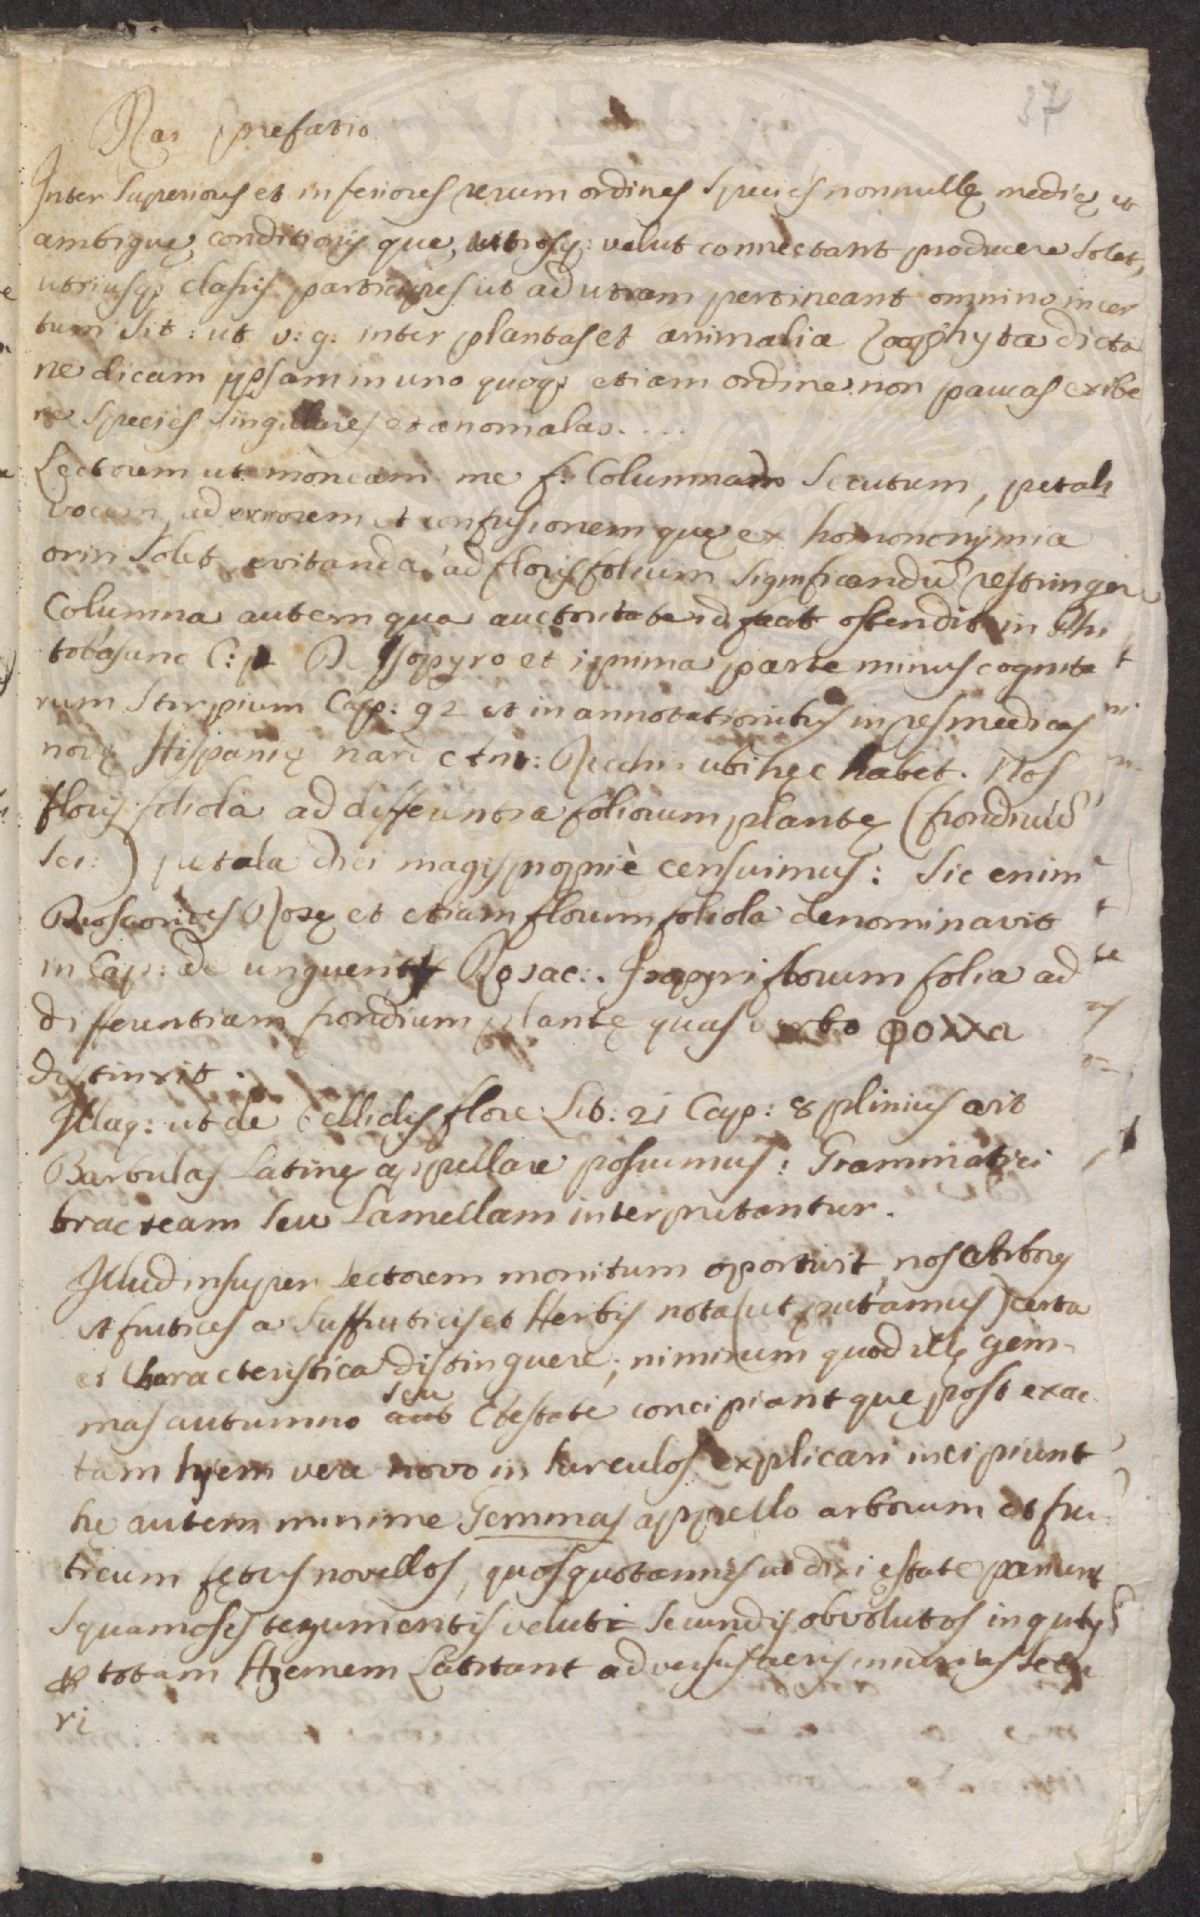 37
Rai prefatio
Inter superiores et inferiores rerum ordines species nonnullę medię et
ambiguę conditionis que, utrosq: velut connectant producere solet,
utriusq; classis participes ut ad utram pertineant omnino incer
tum sit: ut v: g: inter plantas et animalia Zoophyta dicta
ne dicam ipsam in uno quoq; etiam ordine non paucas exibe
re species singulares et anomalas. ...
Lectorem ut moneam me f: Columnam secutum, petali
vocem, ad errorem et confusionem quę ex homononymia
oriri solet evitanda, ad floris folium significandũ restringere
Columna autem qua auctoritate id fecit ostendit in Phi
tobasano C: D Isopyro et i prima parte minus cognita
rum stirpium Cap: 92 et in annotationibus in res medicas
novę Hispanię nard Ant: Recchi. ubi hęc habet. Nos
floris foliola ad differentia foliorum plantę (frondiũ
sci:) petala dici magis propriè censuimus: Sic enim
Dioscorides Rosę et etiam florum foliola denominavit
in Cap: de unguento Rosac:. Isopyri florum folia ad
differentiam frondium plantę quas verbo φολλα
distinxit.
Illaq: ut de bellidis flore Lib: 21 Cap: 8 plinius ait
Barbulas Latinę appellare possumus: Grammatici
bracteam seu Lamellam interpretantur.
Illud insuper Lectorem monitum oportuit, nos Arbores
et frutices a Suffruticis et Herbis nota (ut putamus) certa
et characteristica distinguere; nimirum quod illę gem-
mas autumno aut seu Ęstate concipiant quę post exac
tam hyem vere novo in surculos explicari incipiunt
hę autem minime Gemmas appello arborum et fru-
ticum fętus novellos, quos quotannis ut dixi ęstate pariunt
squamosis tegumentis veluti secundis obvolutos in qutis
& totam Hyemem Latitant adversus aeris iniurias secu
ri